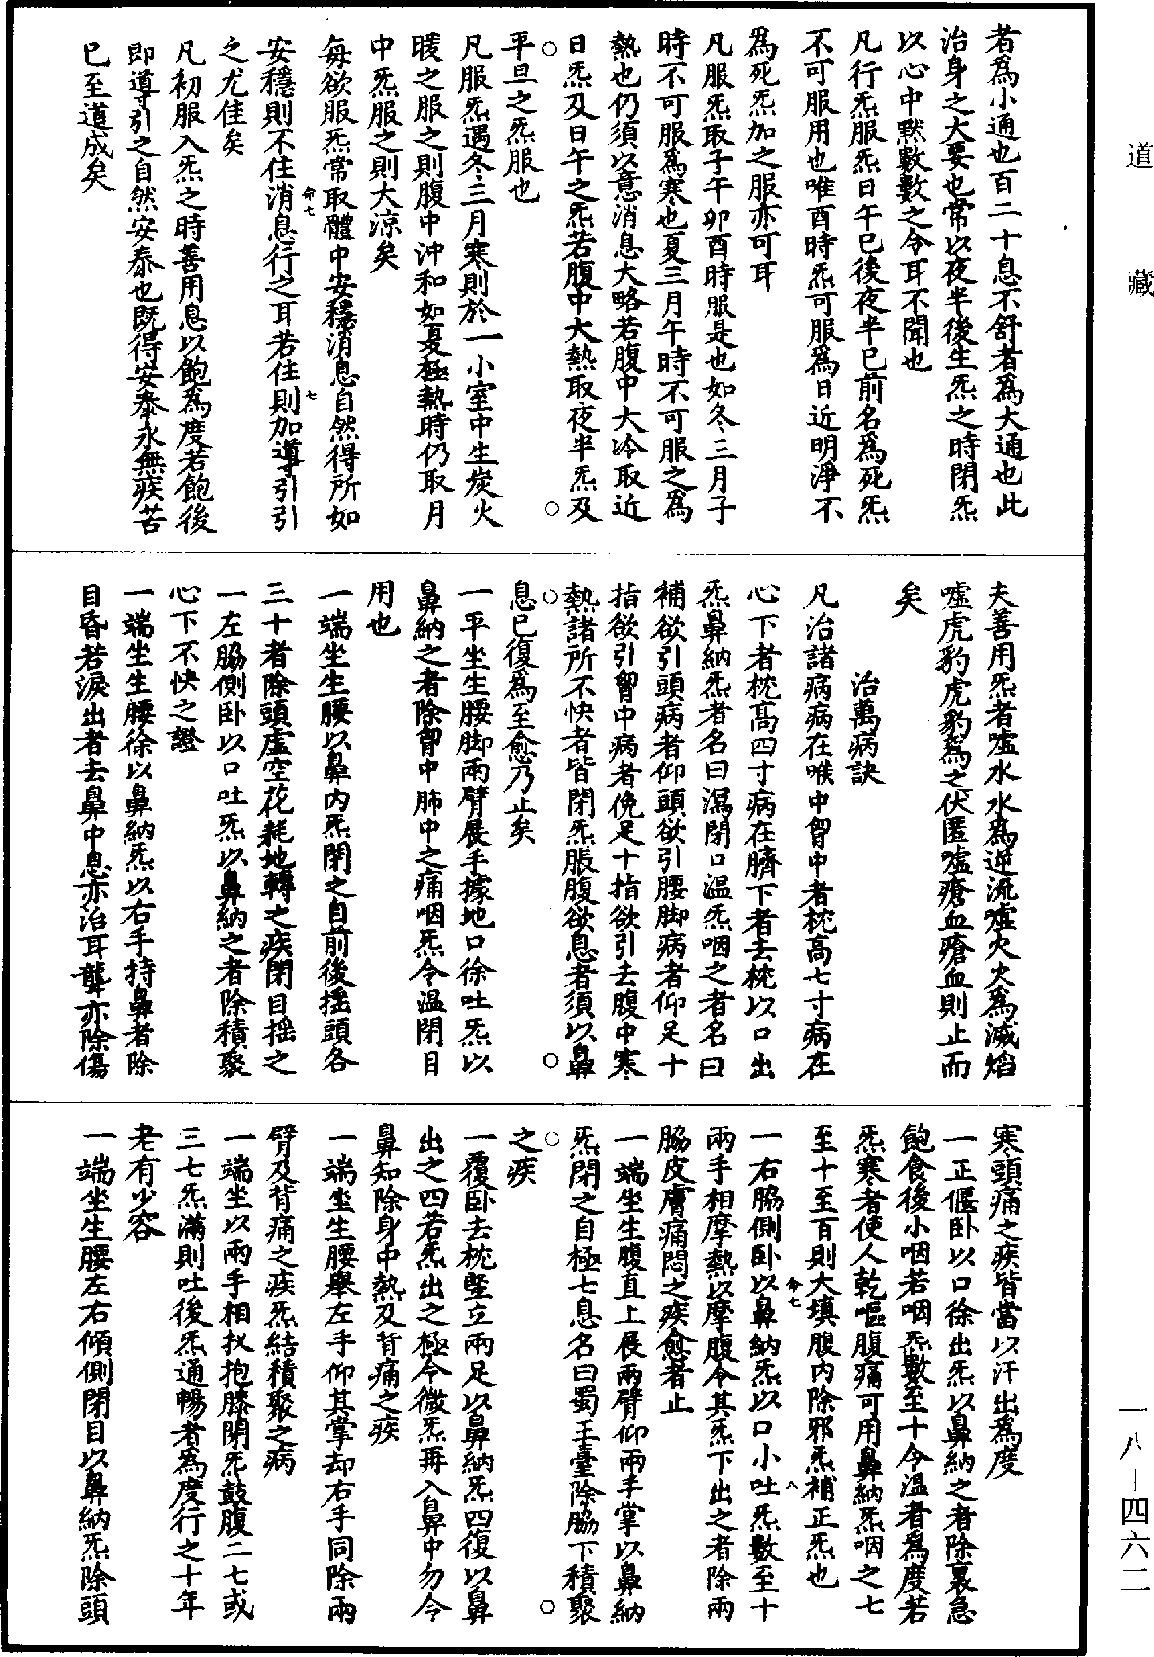 道藏
者為小通也百二十息不舒者為大通也此
治身之大要也常以夜半後生炁之時閉炁
以心中黙數數之令耳不聞也
凡行炁服炁日午已後夜半已前名為死炁
不可服用也唯酉時炁可服為日近明淨不
為死炁加之服亦可耳
凡服炁取子午卯酉時服是也如冬三月子
時不可服為寒也夏三月午時不可服之為
熱也仍須以意消息大略若腹中大冷取近
日炁及日午之炁若腹中大熱取夜半炁及
平旦之炁服也
凡服炁遇冬三月寒則於一小室中生炭火
暖之服之則腹中沖和如夏極熱時仍取月
中炁服之則大涼矣
每欲服炁常取體中安穩消息自然得所如
安穩則不住消息行之耳若住則加導引引
命七
七
之尤佳矣
凡初服入炁之時善用息以飽為度若飽後
即導引之自然安泰也既得安泰永無疾苦
已至道成矣
夫善用炁者噓水水為逆流噓火火為滅焰
噓虎豹虎豹為之伏匿噓瘡血瘡血則止而
矣
治萬病訣
凡治諸病病在喉中胷中者枕高七寸病在
心下者枕高四寸病在臍下者去枕以口出
炁鼻納炁者名曰瀉閉口温炁咽之者名曰
補欲引頭病者仰頭欲引腰脚病者仰足十
指欲引胷中病者俛足十指欲引去腹中寒
熱諸所不快者皆閉炁脹腹欲息者須以鼻
息已復為至愈乃止矣
一平坐生腰脚兩臂展手據地口徐吐炁以
鼻納之者除胷中肺中之痛咽炁令温閉目
用也
一端坐生腰以鼻内炁閉之自前後摇頭各
三十者除頭虛空花耗地轉之疾閉目揺之
一左脇側卧以口吐炁以鼻納之者除積聚
心下不快之證
一端坐生腰徐以鼻納炁以右手持鼻者除
目昏若淚出者去鼻中息亦治耳聾亦除傷
寒頭痛之疾皆當以汗出為度
一正偃卧以口徐出炁以鼻納之者除裏急
飽食後小咽若咽炁數至十令温者為度若
炁寒者使人乾嘔腹痛可用鼻納炁咽之七
至十至百則大填腹内除邪炁補正炁也
命七
八
一右脇側卧以鼻納炁以口小吐炁數至十
兩手相摩熱以摩腹令其炁下出之者除兩
脇皮膚痛悶之疾愈者止
一端坐生腹直上展兩臂仰兩手掌以鼻納
炁閉之自極七息名曰蜀王臺除脇下積聚
之疾
一覆卧去枕竪立兩足以鼻納炁四復以鼻
出之四若炁出之極令微炁再入鼻中勿令
鼻知除身中熱及背痛之疾
一端坐生腰舉左手仰其掌却右手同除兩
臂及背痛之疾炁結積聚之病
一端坐以兩手相抆抱膝閉炁鼓腹二七或
三七炁滿則吐後炁通暢者為度行之十年
老有少容
一端坐生腰左右傾側閉目以鼻納炁除頭
一八—四六二